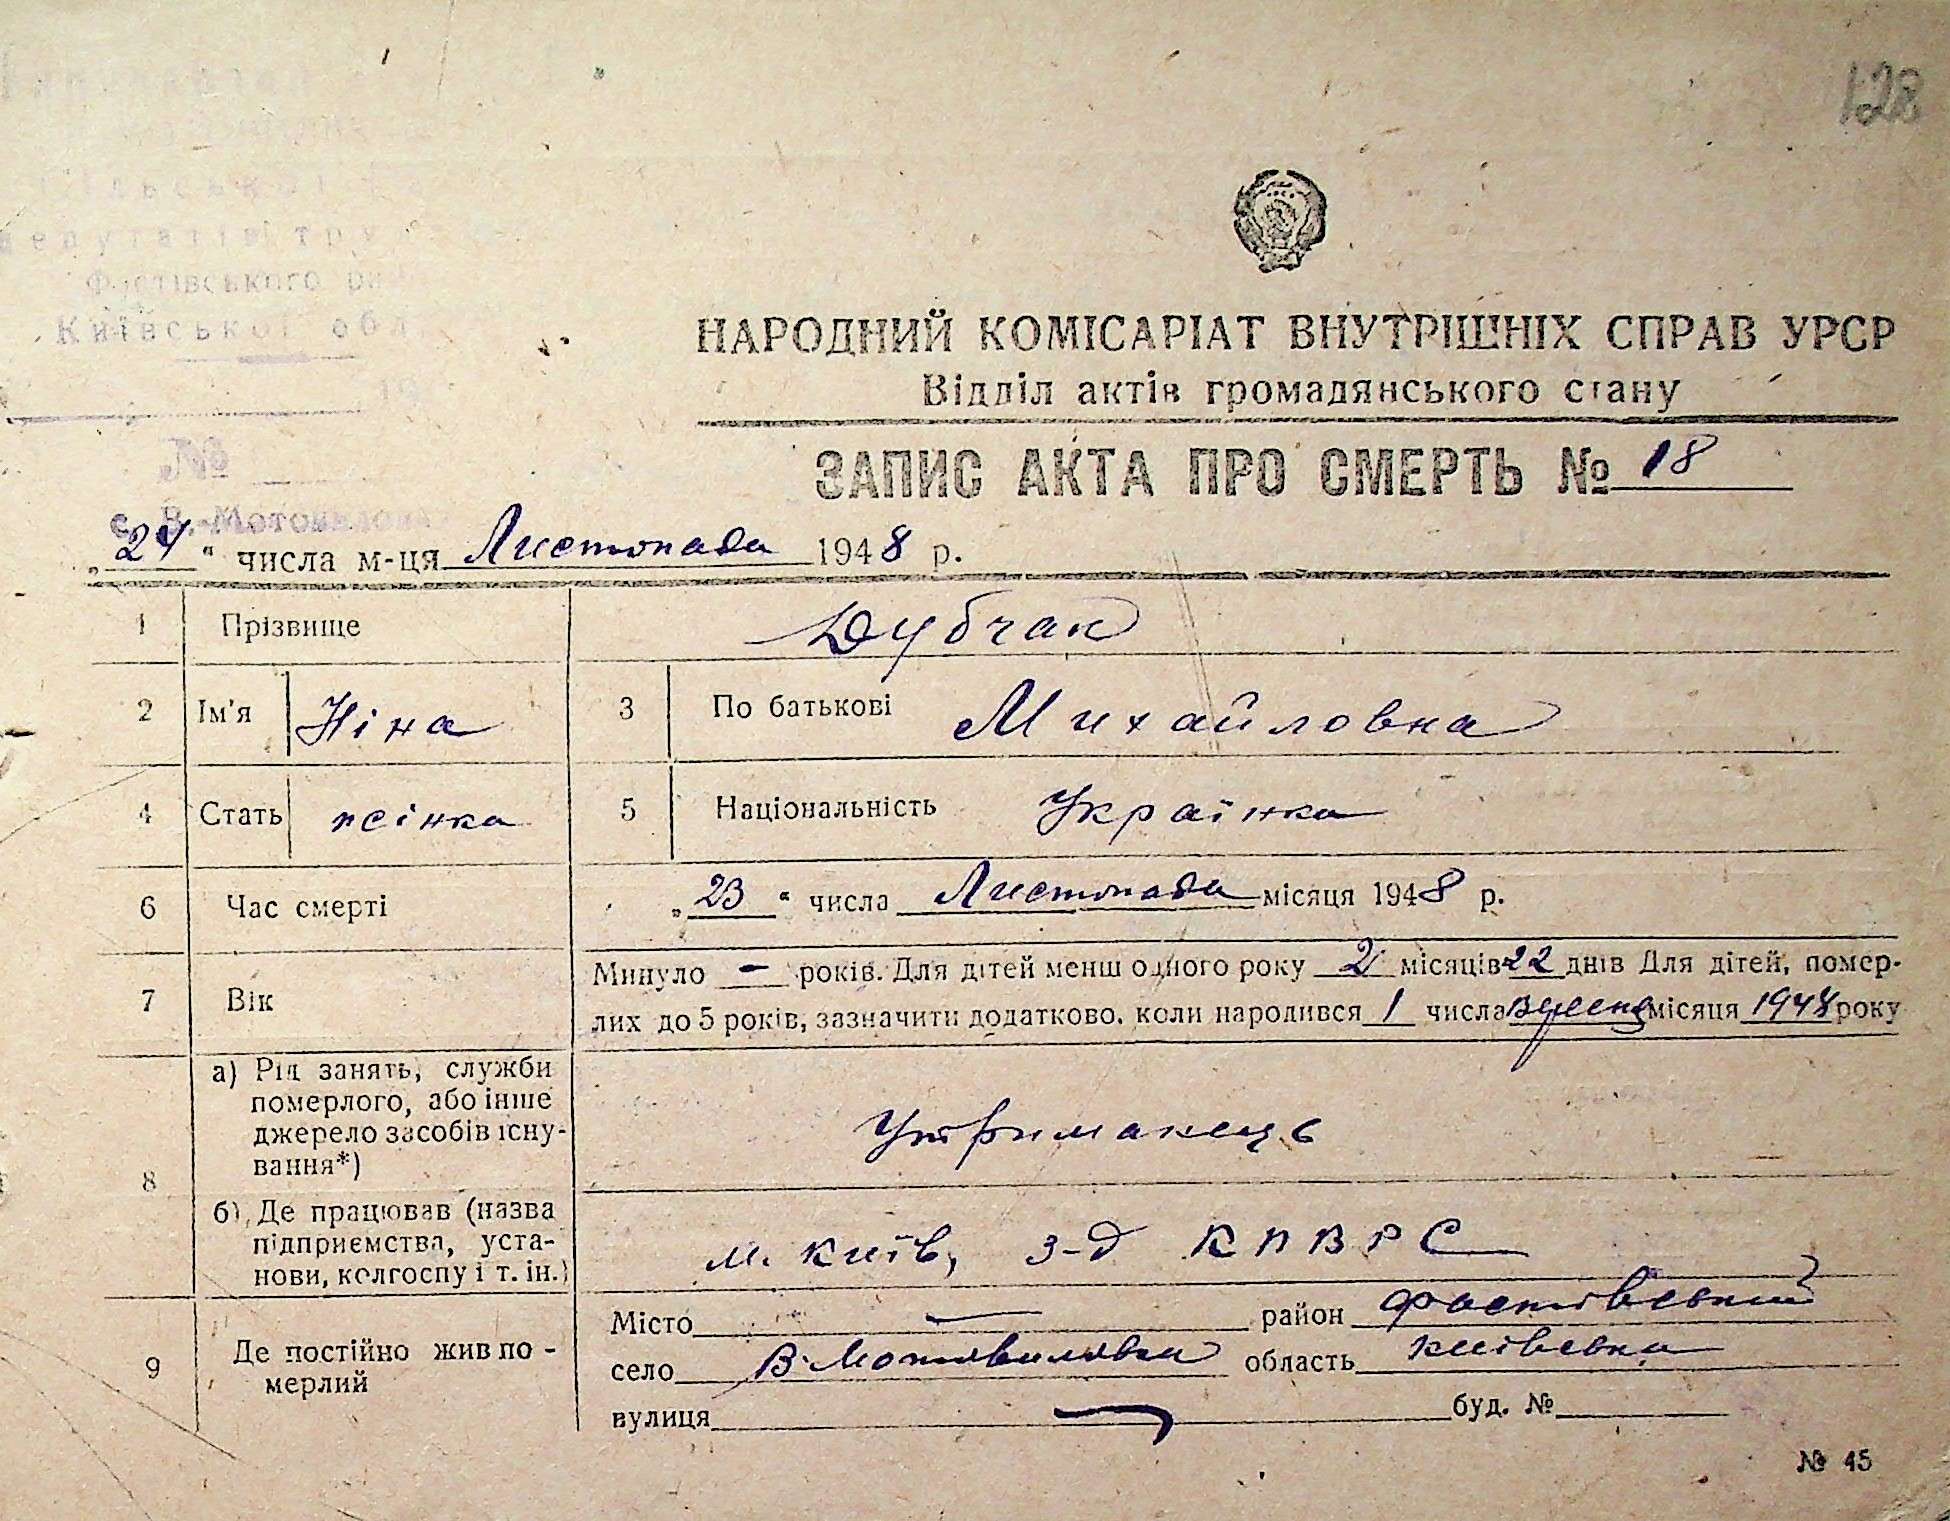 128
Фастівського
Київської обл.
НАРОДНИЙ КОМІСАРІАТ ВНУТРІШНІХ СПРАВ УРСР
Відділ актів громадянського стану
ЗАПИС АКТА ПРО СМЕРТЬ № 18
№
с. В.-Мотовилівка
„24“ числа м-ця Листопада 1948 р.
1 Прізвище Дубчак
2 Ім'я Ніна 3 По батькові Михайловна
4 Стать жінка 5 Національність Українка
6 Час смерті „23“ числа Листопада місяця 1948 р.
7 Вік Минуло - років. Для дітей менш одного року 2 місяців 22 днів Для дітей, помер-
лих до 5 років, зазначити додатково, коли народився 1 числа вересня місяця 1948 року
8 а) Рід занять, служби
померлого, або інше
джерело засобів існу-
вання*) Утриманець
б) Де працював (назва
підприємства, уста-
нови, колгоспу і т. ін.) м. Київ, з-д КПВРС
9 Де постійно жив по-
мерлий
Місто — район Фастівський
село В-Мотовилівка область Київська
вулиця — буд. №
№ 45